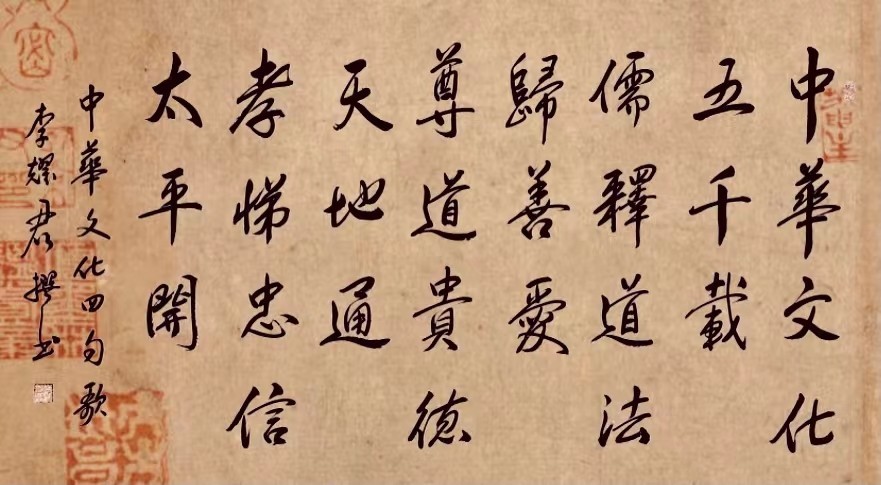 中華文化
五千載
儒釋道法
歸善愛
尊道貴德
天地通
孝悌忠信
太平開
中華文化四句歌
李耀君撰书